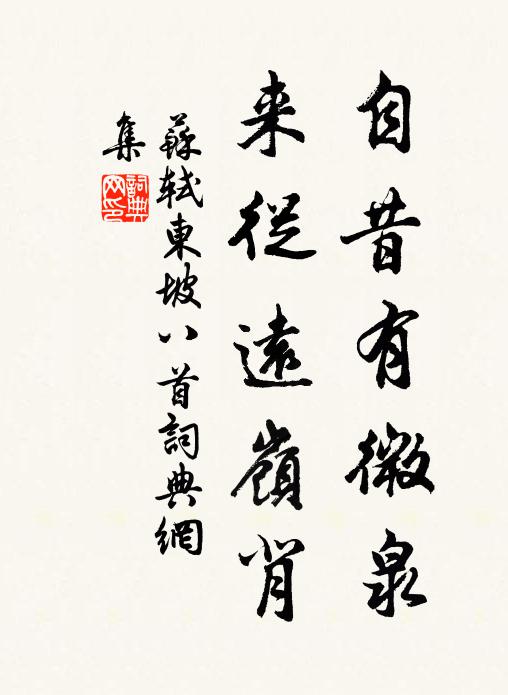 自昔有微泉
来從遠嶺背
蘇轼東坡八首詞典網
集
詞典
网印